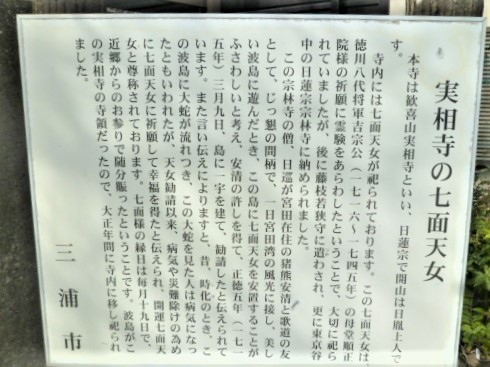 実相寺の七面天女
本寺は歓喜山実相寺といい、日蓮宗で開山は日胤上人で
す。
寺内には七面天女が祀られております。この七面天女は、
徳川八代将軍吉宗公（一七一六〜一七四五年）の母堂順正
院様の祈願に霊験をあらわしたということで、大切に祀ら
れていましたが、後に藤枝若狭守に遣わされ、更に東京谷
中の日蓮宗宗林寺に納められました。
この宗林寺の僧、日巡が宮田在住の猪熊安清と歌道の友
として、じっ懇の間柄で、一日宮田湾の風光に接し、美し
い波島に遊んだとき、この島に七面天女を安置することが
ふさわしいと考え、安清の許しを得て、正徳五年（一七一
五年）三月九日、島に一宇を建て、勧請したと伝えられて
います。また言い伝えによりますと、昔、時化のとき、こ
の波島に大蛇が流れつき、この大蛇を見た人は病気になっ
たともいわれたが、天女勧請以来、病気や災難除けの為め
に七面天女に祈願して幸福を得たと伝えられ、開運七面天
女と尊称されております。七面様の縁日は毎月十九日で、
近郷からのお参りで随分賑ったということです。波島がこ
の実相寺の寺領だったので、大正年間に寺内に移し祀られ
ました。
三浦市